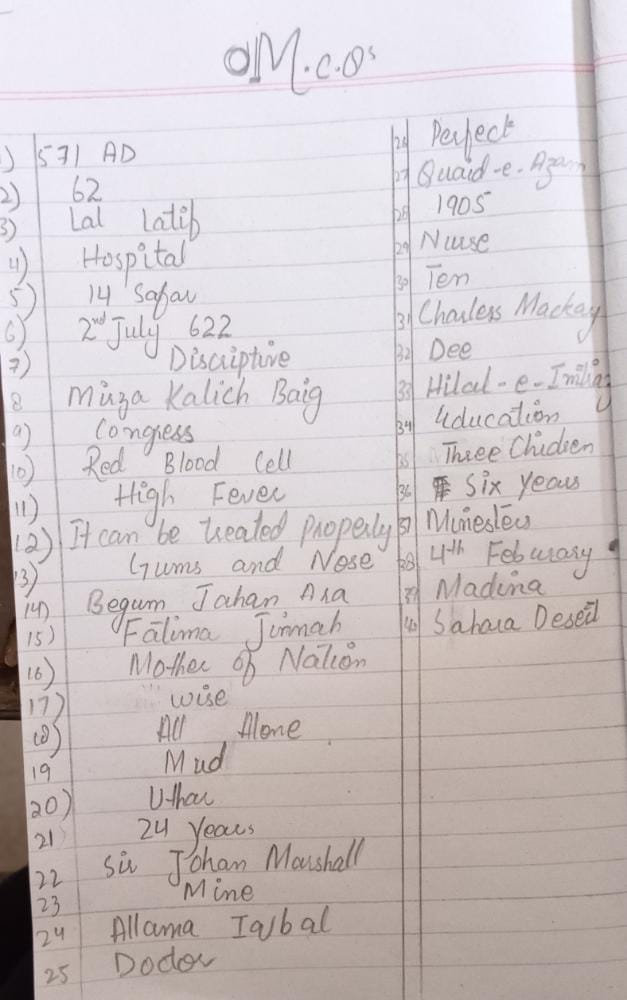 M.c.Qs
1) 571 AD
2) 62
3) Lal Latif
4) Hospital
5) 14 Safar
6) 2nd July 622
7) Discriptive
8 Mirza Kalich Baig
9) Congress
10) Red Blood Cell
11) High Fever
12) It can be treated properly
13) Gums and Nose
14) Begum Jahan Ara
15) Fatima Jinnah
16) Mother of Nation
17) wise
18) All Alone
19 Mud
20) Uthar
21 24 years
22 Sir Johan Marshall
23 Mine
24 Allama Iqbal
25 Doctor
26 Perfect
27 Quaid-e-Azam
28 1905
29 Nurse
30 Ten
31 Charless Mackay
32 Dee
33 Hilal-e-Imtiaz
34 Education
35 Three Chidren
36 Six years
37 Minesters
38 4th Feburary
39 Madina
40 Sahara Desert